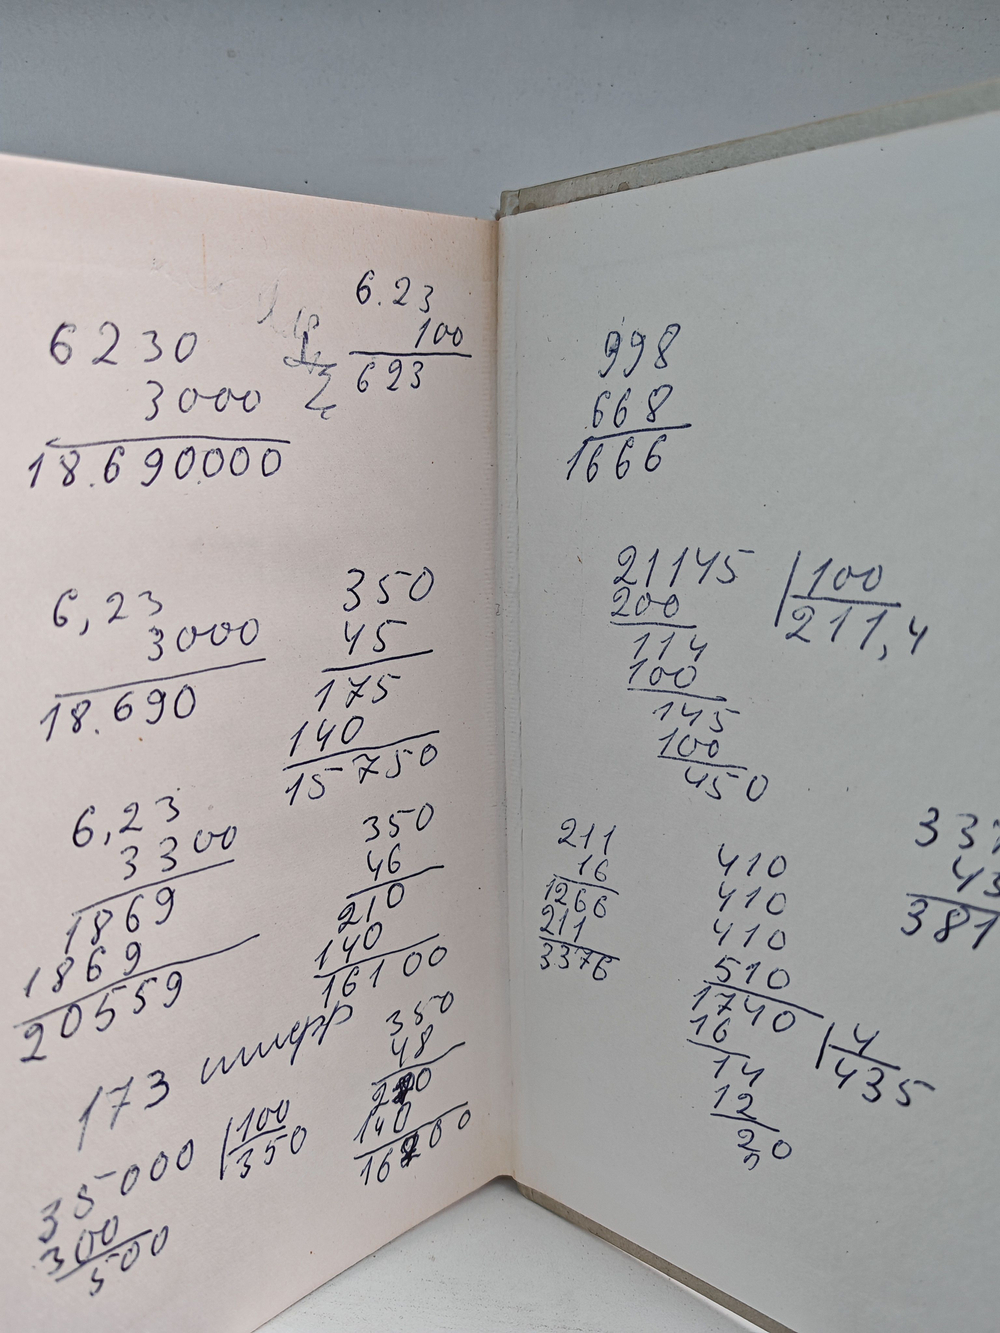 6230
3000
18.690000
6.23
100
623
6,23
3000
18.690
350
45
175
140
15750
6,23
3300
1869
1869
20559
350
46
210
140
16100
173 шифр
350
48
140
35000 100
350
300
500
998
668
1666
21145 100
200 211,4
114
100
145
100
450
211
16
1266
211
3376
410
410
410
510
1740 4
16 435
14
12
20
337
43
381